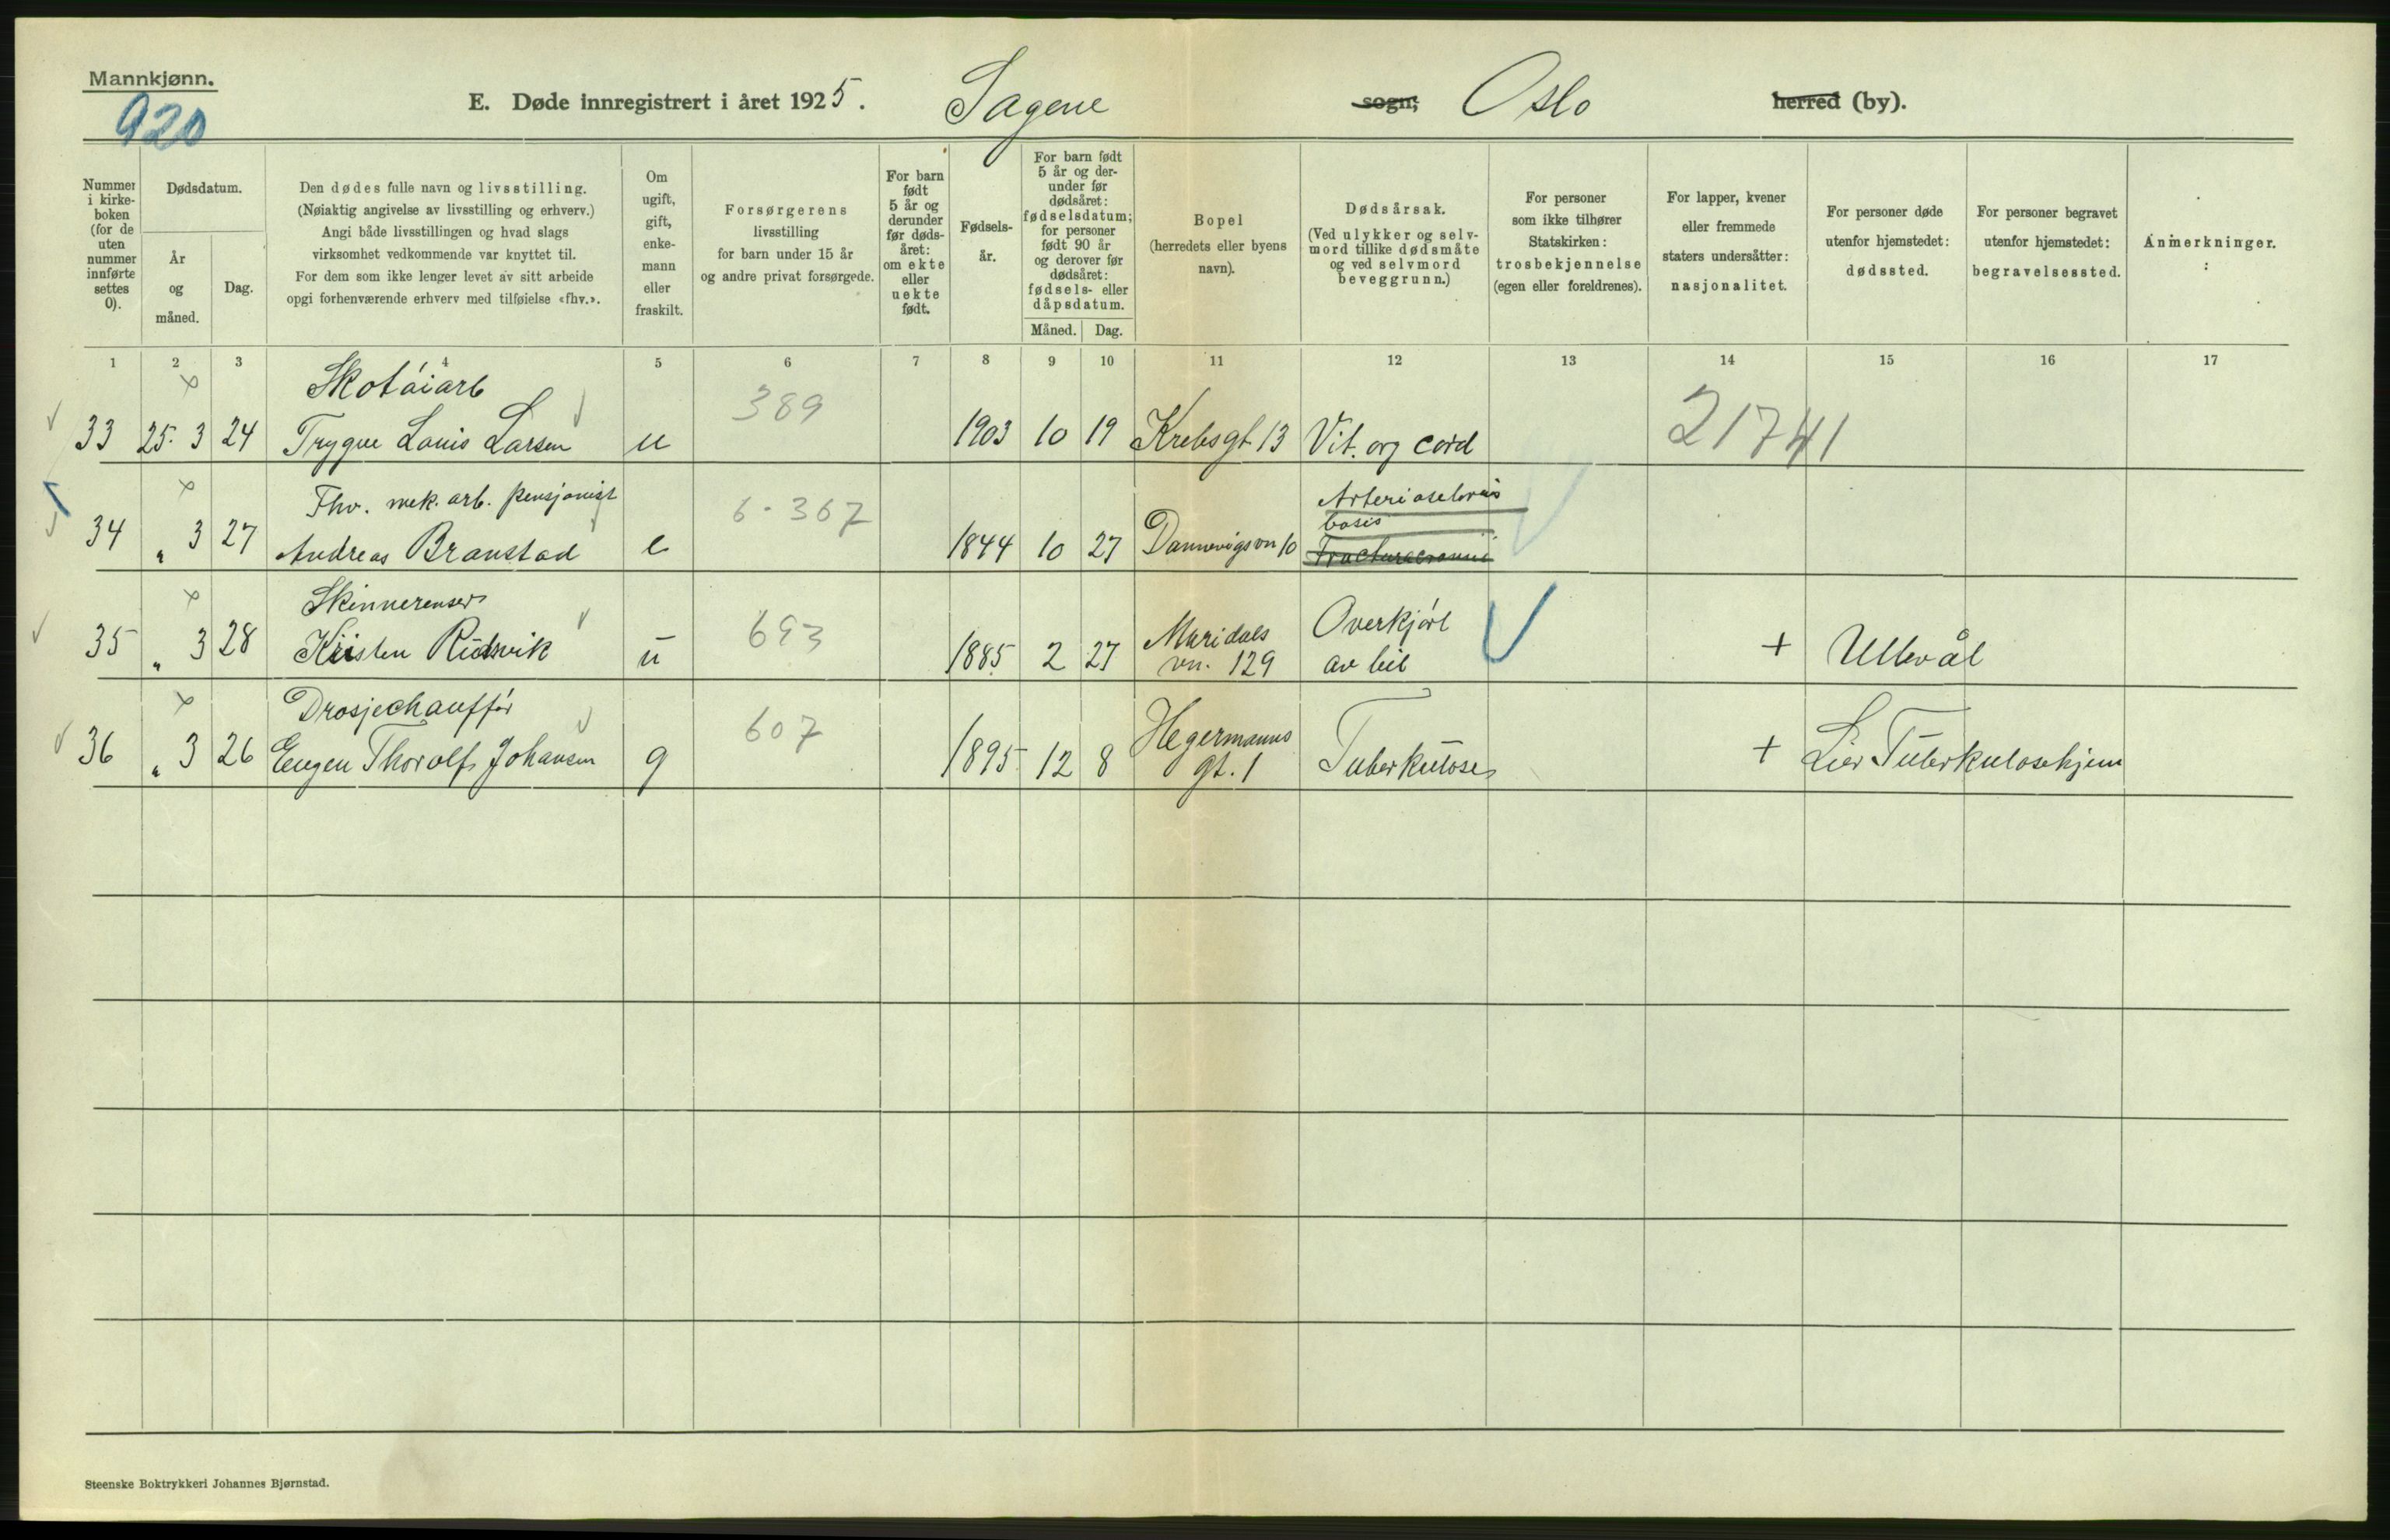 Mannkjønn.
920
E. Døde innregistrert i året 1925. Sagene sogn; Oslo herred (by).
Nummer i kirke-boken (for de uten nummer innførte settes 0).
Dødsdatum.
År og måned.
Dag.
Den dødes fulle navn og livsstilling.
(Nøiaktig angivelse av livsstilling og erhverv.)
Angi både livsstillingen og hvad slags
virksomhet vedkommende var knyttet til.
For dem som ikke lenger levet av sitt arbeide
opgi forhenværende erhverv med tilføielse «fhv.».
Om ugift, gift, enke-mann eller fraskilt.
Forsørgerens
livsstilling
for barn under 15 år
og andre privat forsørgede.
For barn født 5 år og derunder før døds-året: om ekte eller uekte født.
Fødsels-år.
For barn født 5 år og der-under før dødsåret: fødselsdatum; for personer født 90 år og derover før dødsåret: fødsels- eller dåpsdatum.
Måned. Dag.
Bopel
(herredets eller byens
navn).
Dødsårsak.
(Ved ulykker og selv-
mord tillike dødsmåte
og ved selvmord
beveggrunn.)
For personer
som ikke tilhører
Statskirken:
trosbekjennelse
(egen eller foreldrenes).
For lapper, kvener
eller fremmede
staters undersåtter:
nasjonalitet.
For personer døde
utenfor hjemstedet:
dødssted.
For personer begravet
utenfor hjemstedet:
begravelsessted.
Anmerkninger.
1 2 3 4 5 6 7 8 9 10 11 12 13 14 15 16 17
Skotøiarb
33 25. 3 24 Trygve Louis Larsen u 389 1903 10 19 Krebsgt 13 Vit. org cord 21741
Fhv. mek. arb. pensjonist 6-367
34 " 3 27 Andreas Branstad e 1844 10 27 Dannevigsvn 10
Skinnerenser 693 Overkjørt
35 " 3 28 Kristen 1885 2 27 Maridals vn. 129 av bil + Ullevål
Drosjechauffør 607
36 " 3 26 Eugen Thorolf Johansen g 1895 12 8 Hegermanns gt. 1 Tuberkulose + Lier Tuberkulosehjem
Steenske Boktrykkeri Johannes Bjørnstad.